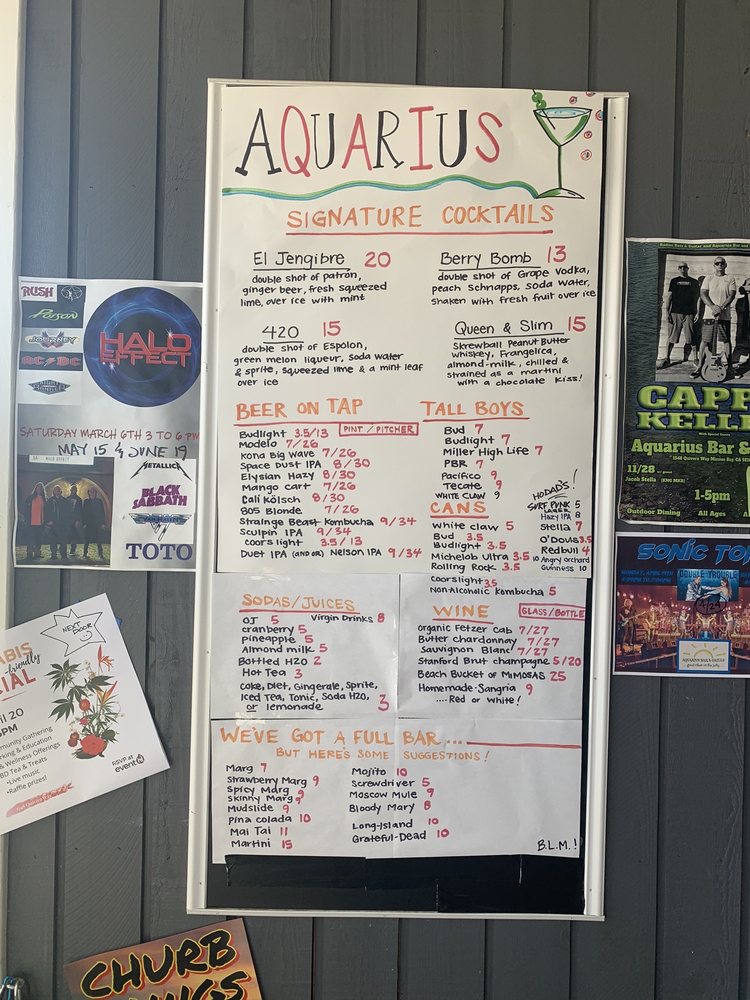 AQUARIUS
SIGNATURE COCKTAILS
El Jengibre 20
double shot of patrón,
ginger beer, fresh squeezed
lime, over ice with mint
Berry Bomb 13
double shot of Grape Vodka,
peach Schnapps, soda water,
shaken with fresh fruit over ice
420 15
double shot of Espolon,
green melon liqueur, soda water
& sprite, squeezed lime & a mint leaf
over ice
Queen & Slim 15
Skrewball Peanut Butter
whiskey, Frangelica,
almond-milk, chilled &
strained as a martini
with a chocolate kiss!
BEER ON TAP
PINT / PITCHER
Budlight 3.5/13
Modelo 7/26
Kona Big Wave 7/26
Space Dust IPA 8/30
Elysian Hazy 8/30
Mango cart 7/26
Cali Kölsch 8/30
805 Blonde 7/26
Strainge Beast Kombucha 9/34
Sculpin IPA 9/34
Coors light 3.5/13
Duet IPA (AND OR) Nelson IPA 9/34
TALL BOYS
Bud 7
Budlight 7
Miller High Life 7
PBR 7
Pacifico 9
Tecate 9
WHITE CLAW 9
CANS
White claw 5
Bud 3.5
Budlight 3.5
Michelob Ultra 3.5
Rolling Rock 3.5
Coorslight 3.5
Non-Alcoholic Kombucha 5
HODADS!
SURF PUNK 5
LAGER
Hazy IPA 8
Stella 7
O'Douls 3.5
Redbull 4
10 Angry orchard
Guinness 10
SODAS/JUICES
OJ 5
Virgin Drinks 8
cranberry 5
pineapple 5
Almond milk 5
Bottled H2O 2
Hot Tea 3
Coke, Diet, Gingerale, Sprite,
Iced Tea, Tonic, Soda H2O,
or lemonade 3
WINE
GLASS/BOTTLE
organic Fetzer Cab 7/27
Butter chardonnay 7/27
Sauvignon Blanc 7/27
Stanford Brut champagne 5/20
Beach Bucket of MIMOSAS 25
Homemade-Sangria 9
....Red or White!
WE'VE GOT A FULL BAR...
BUT HERE'S SOME SUGGESTIONS!
Marg 7
Strawberry Marg 9
Spicy Marg 9
Skinny Marg 9
Mudslide 9
pina colada 10
Mai Tai 11
Martini 15
Mojito 10
Screwdriver 5
Moscow Mule 9
Bloody Mary 8
Long-Island 10
Grateful-Dead 10
B.L.M.!
RUSH
POISON
JOURNEY
AC/DC
HALO
EFFECT
SATURDAY MARCH 6TH 3 TO 6 PM
MAY 15 & JUNE 19
METALLICA
BLACK
SABBATH
VAN HALEN
TOTO
NEXT DOOR
-friendly
RSVP at
event
Live music
Raffle prizes!
CHURB
CAPP
KELL
Aquarius Bar &
11/28
Jacob Stella
1-5pm
Outdoor Dining
All Ages
SONIC TO
DOUBLE TROUBLE
4/24